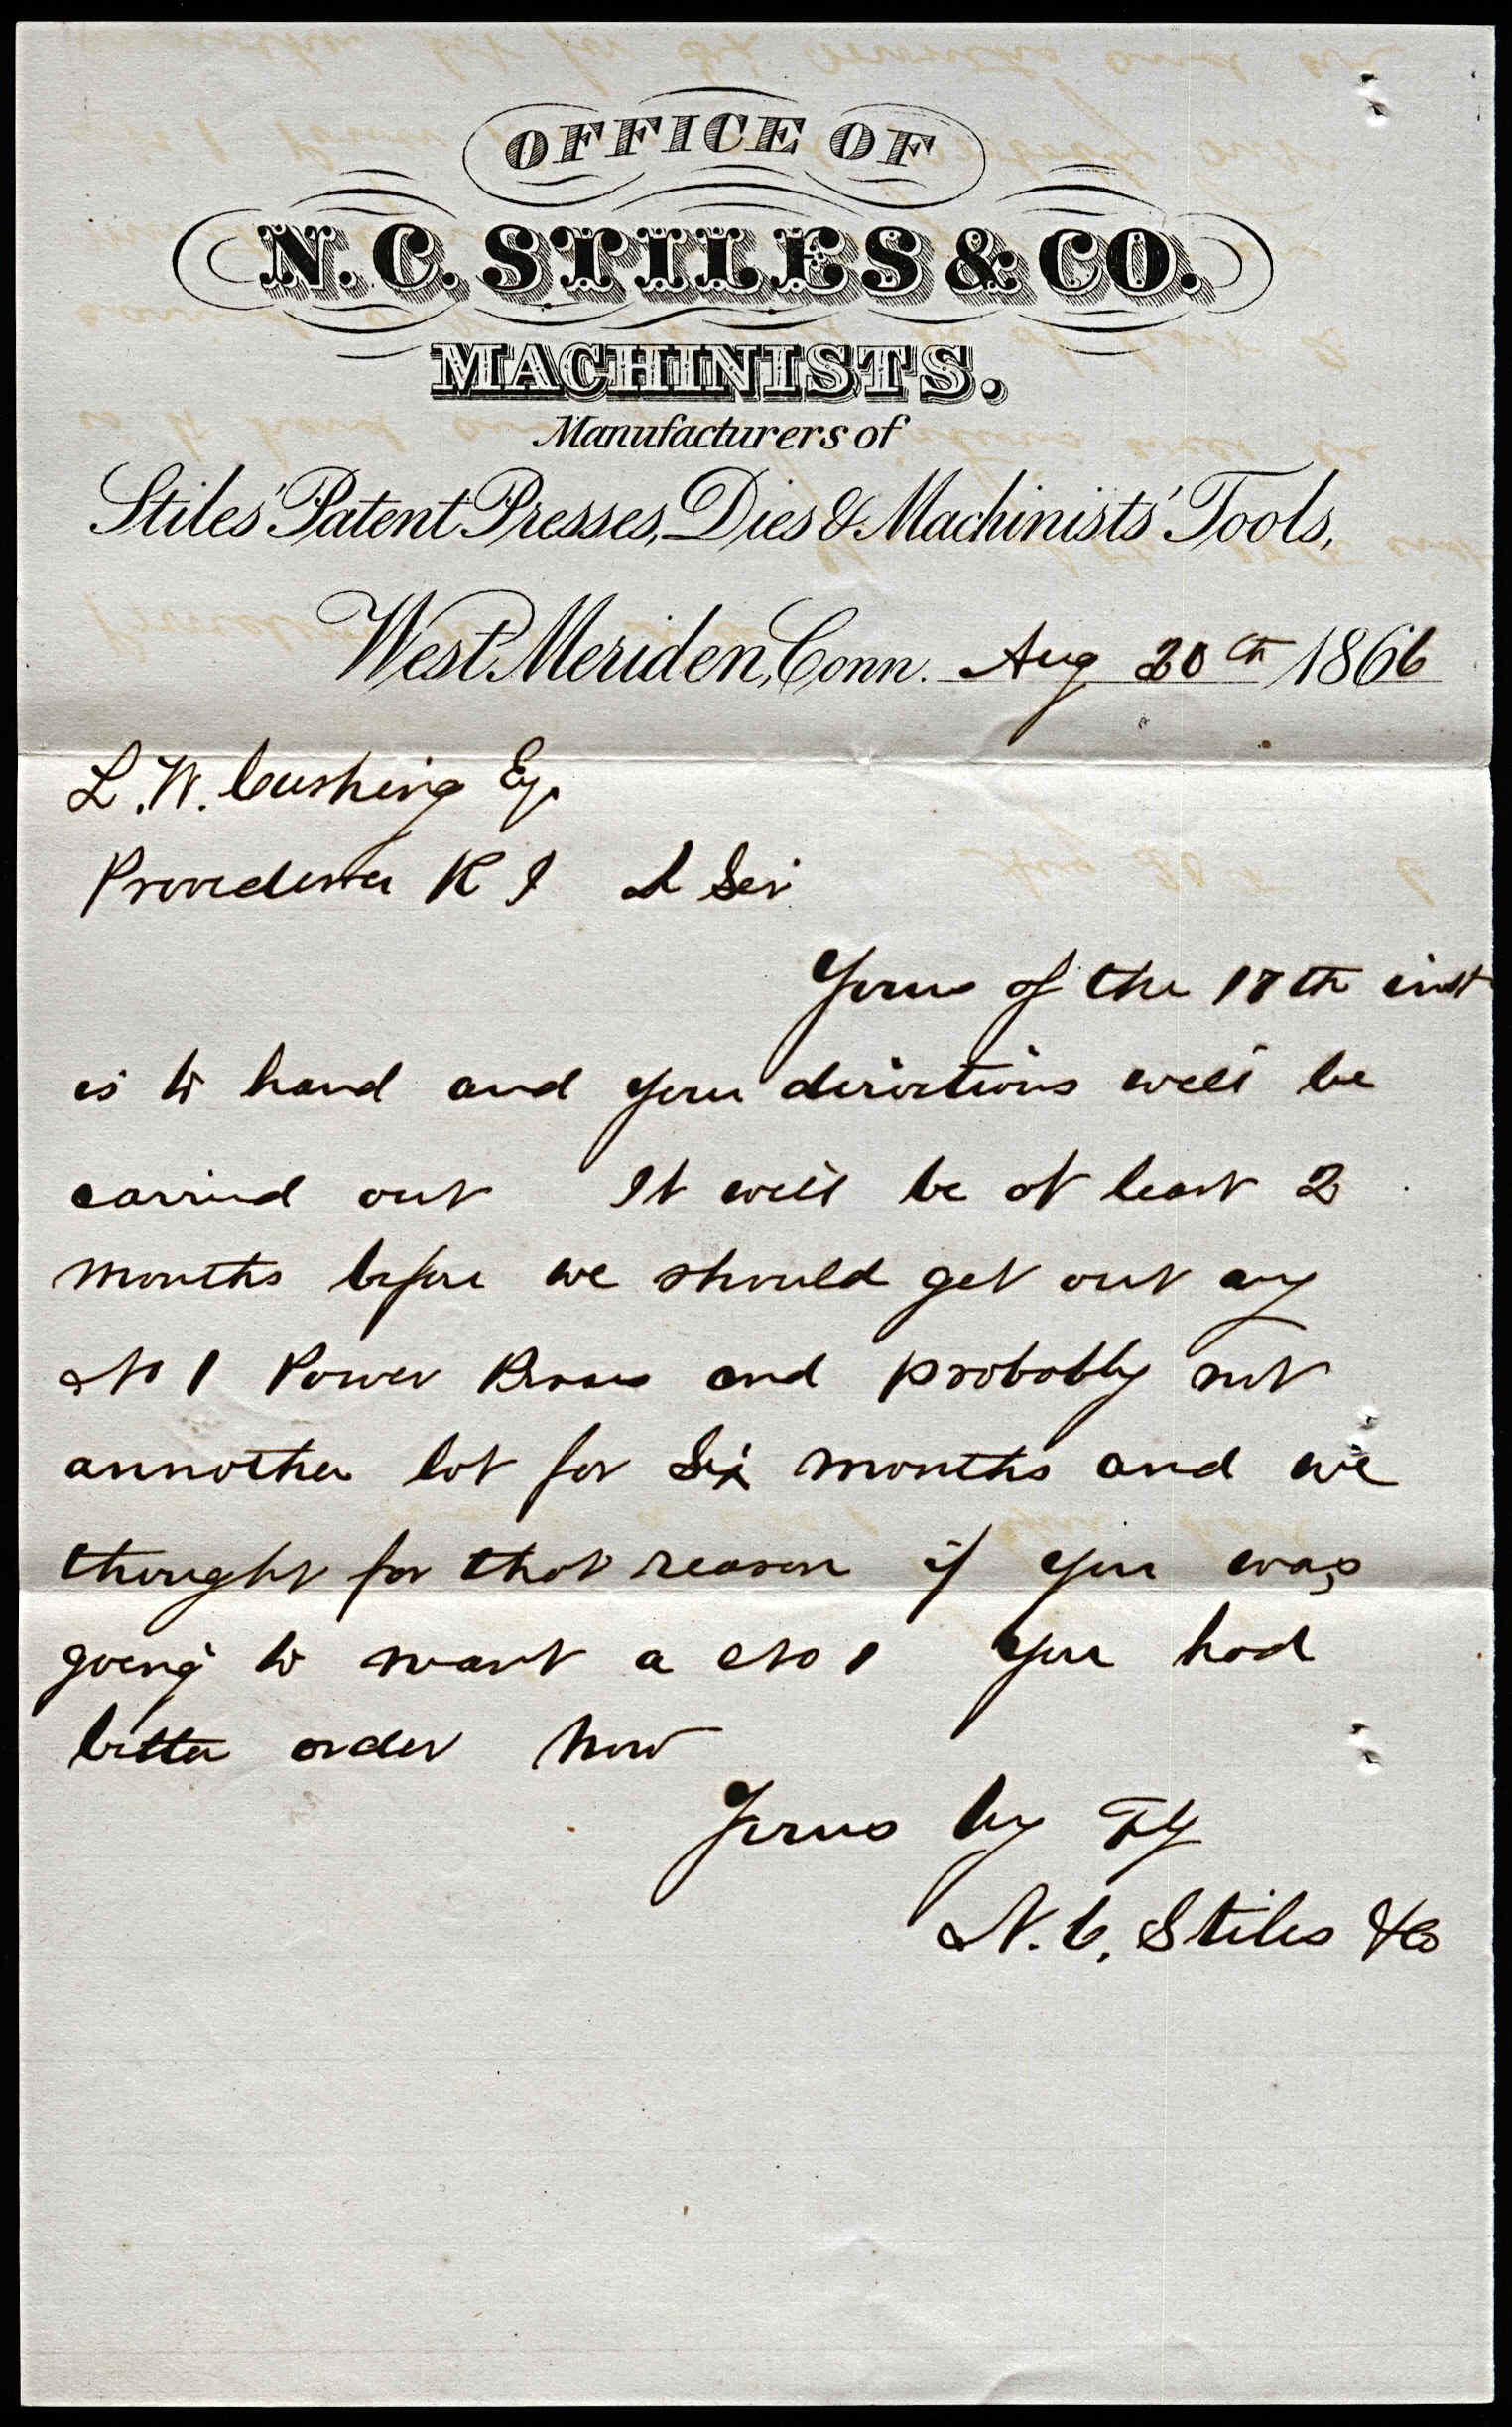 OFFICE OF
N. C. STILES & CO.
MACHINISTS.
Manufacturers of
Stiles' Patent Presses, Dies & Machinists' Tools,
West Meriden, Conn. Aug 20th 1866
L. W. Cushing Esq.
Providence R I D Sir
Yours of the 17th inst
is to hand and your directions will be
carried out It will be at least 2
months before we should get out any
No 1 Power Press and probably not
annother lot for Six months and we
thought for that reason if you was
going to want a No 1 you had
better order now
Yours
N. C. Stiles & Co